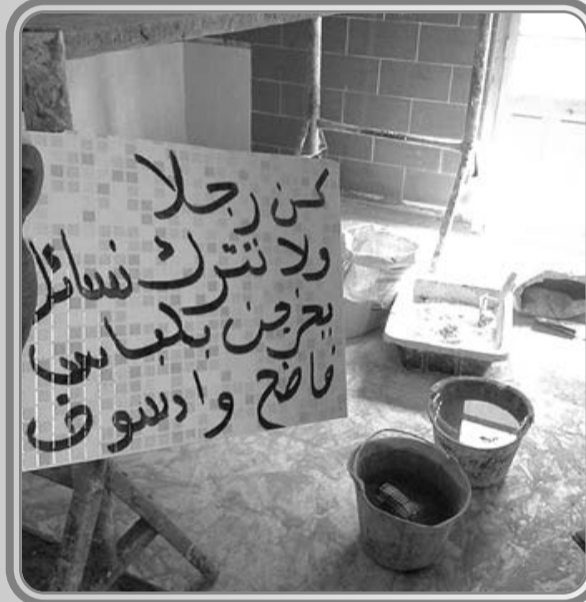 كن رجلا
ولا تترك نسائك
يخرجن بلباس
فاضح وا